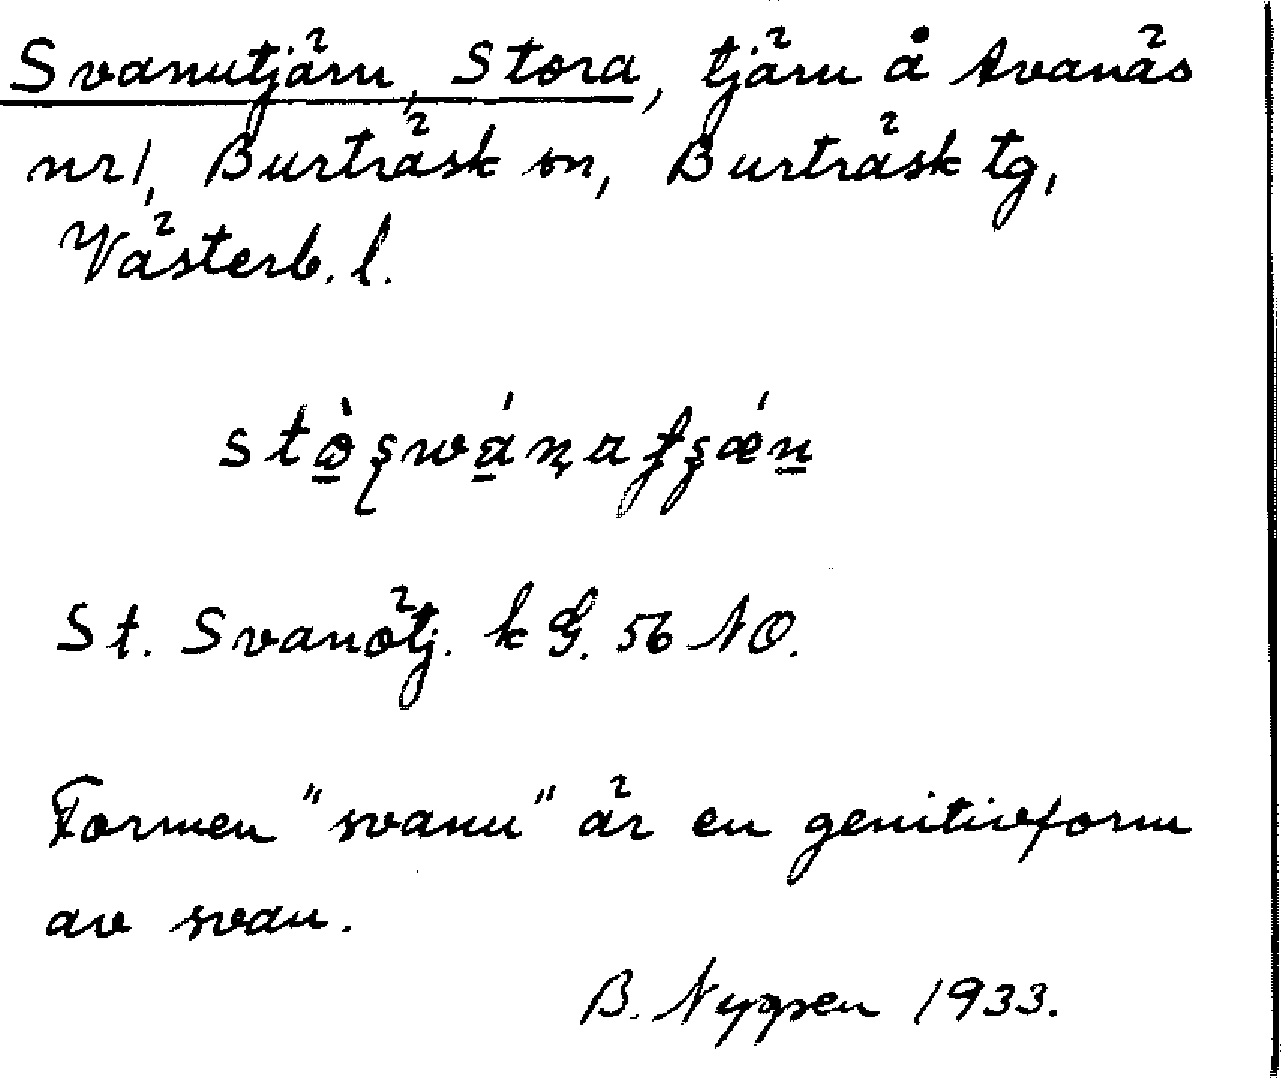 Svanutjärn, Stora, tjärn å Avanäs
nr 1, Burträsk sn, Burträsk tg,
Västerb. l.
St. Svanötj. k G. 56 NO.
Formen "svanu" är en genitivform
av svan.
B. Nygren 1933.